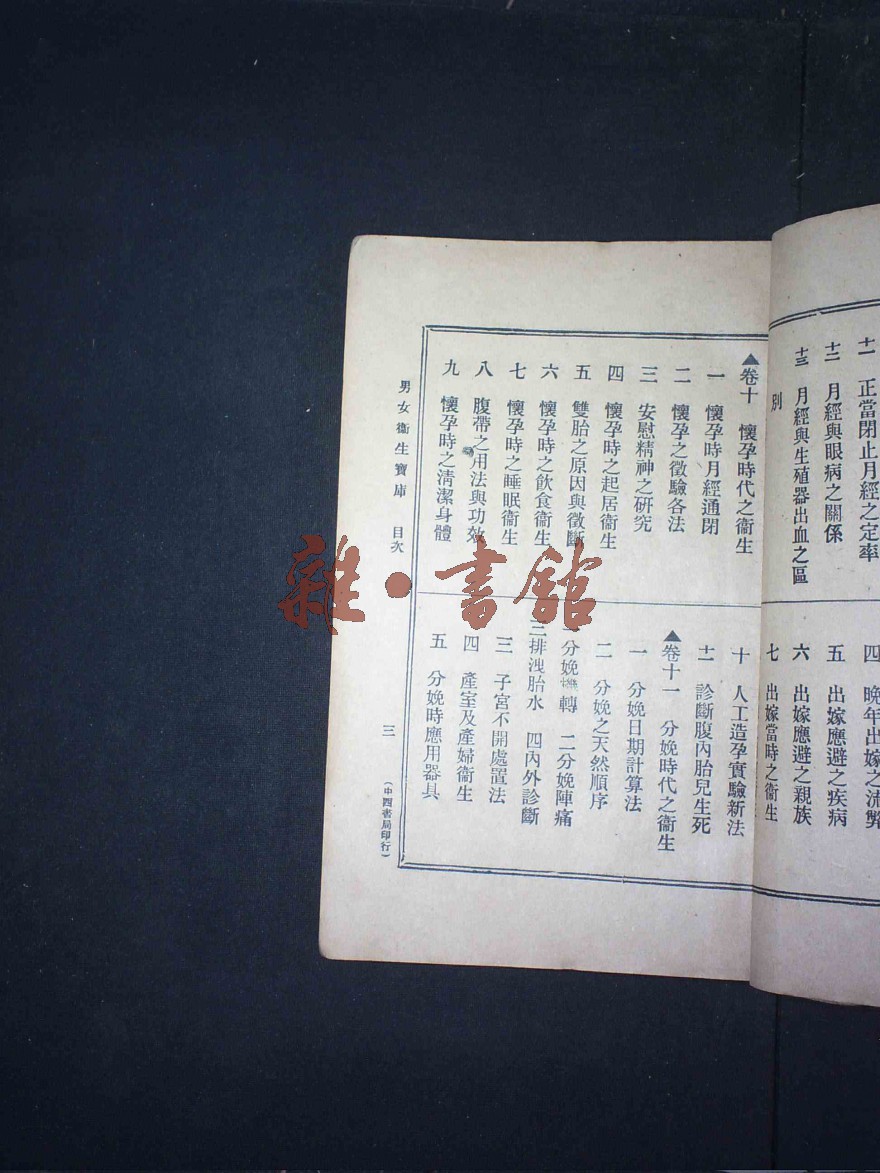 十一 正當閉止月經之定率
十二 月經與眼病之關係
十三 月經與生殖器出血之區
別
四 晚年出嫁之流弊
五 出嫁應避之疾病
六 出嫁應避之親族
七 出嫁當時之衞生
▲卷十 懷孕時代之衞生
一 懷孕時月經通閉
二 懷孕之徵驗各法
三 安慰精神之硏究
四 懷孕時之起居衞生
五 雙胎之原因與徵斷
六 懷孕時之飲食衞生
七 懷孕時之睡眠衞生
八 腹帶之用法與功效
九 懷孕時之清潔身體
十 人工造孕實驗新法
十一 診斷腹內胎兒生死
▲卷十一 分娩時代之衞生
一 分娩日期計算法
二 分娩之天然順序
一分娩機轉 二分娩陣痛
三排洩胎水 四內外診斷
三 子宮不開處置法
四 產室及產婦衞生
五 分娩時應用器具
男女衞生寶庫 目次
三
(中西書局印行)
雜·書館